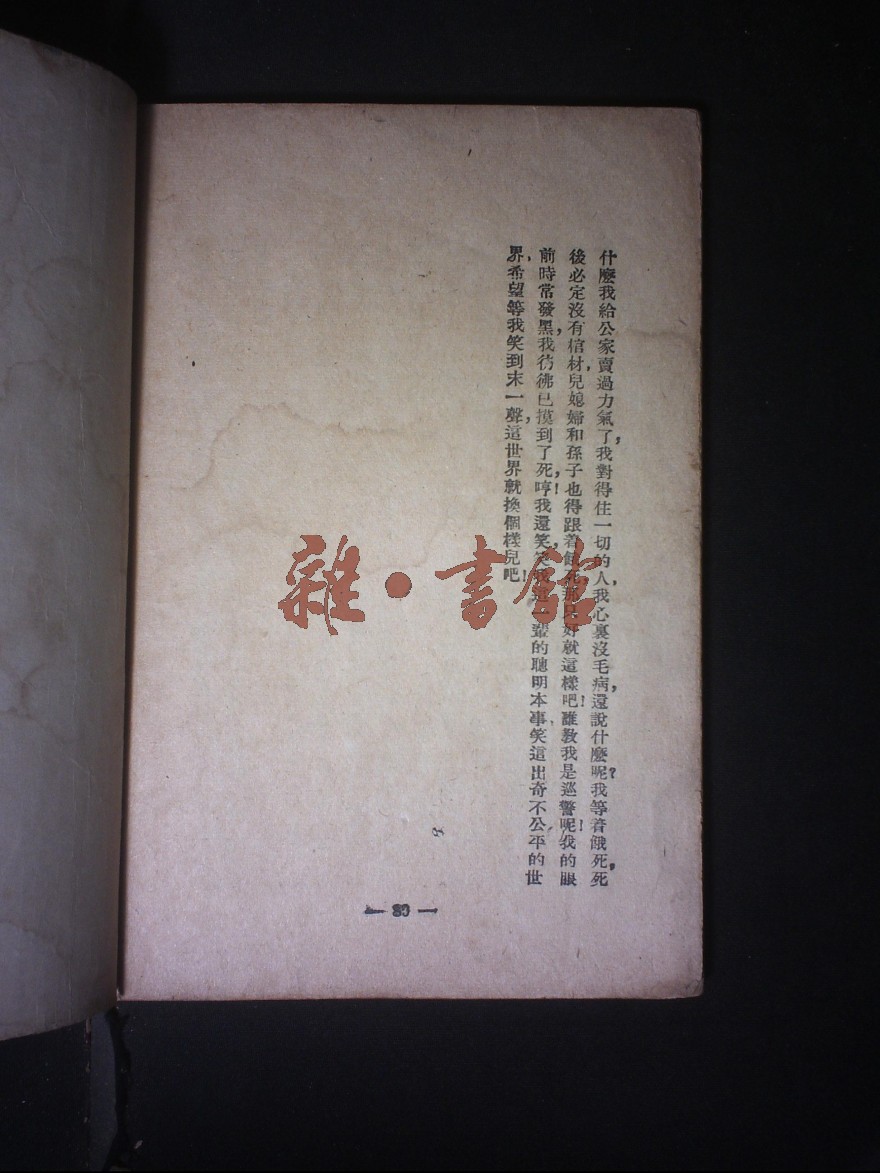 什麼我給公家賣過力氣了，我對得住一切的人，我心裏沒毛病，還說什麼呢？我等着餓死，死
後必定沒有棺材，兒媳婦和孫子也得跟着餓死，好就這樣吧！誰教我是巡警呢！我的眼
前時常發黑，我彷彿已摸到了死，哼！我還笑，笑我這一輩的聰明本事，笑這出奇不公平的世
界，希望等我笑到末一聲，這世界就換個樣兒吧！
— 80 —
雜·書館